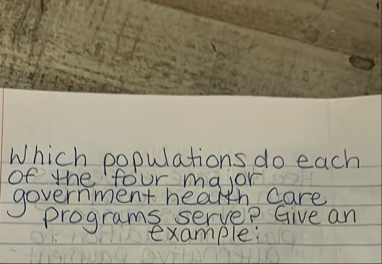 Which populations do each
of the four major
government health care
programs serve? Give an
example: